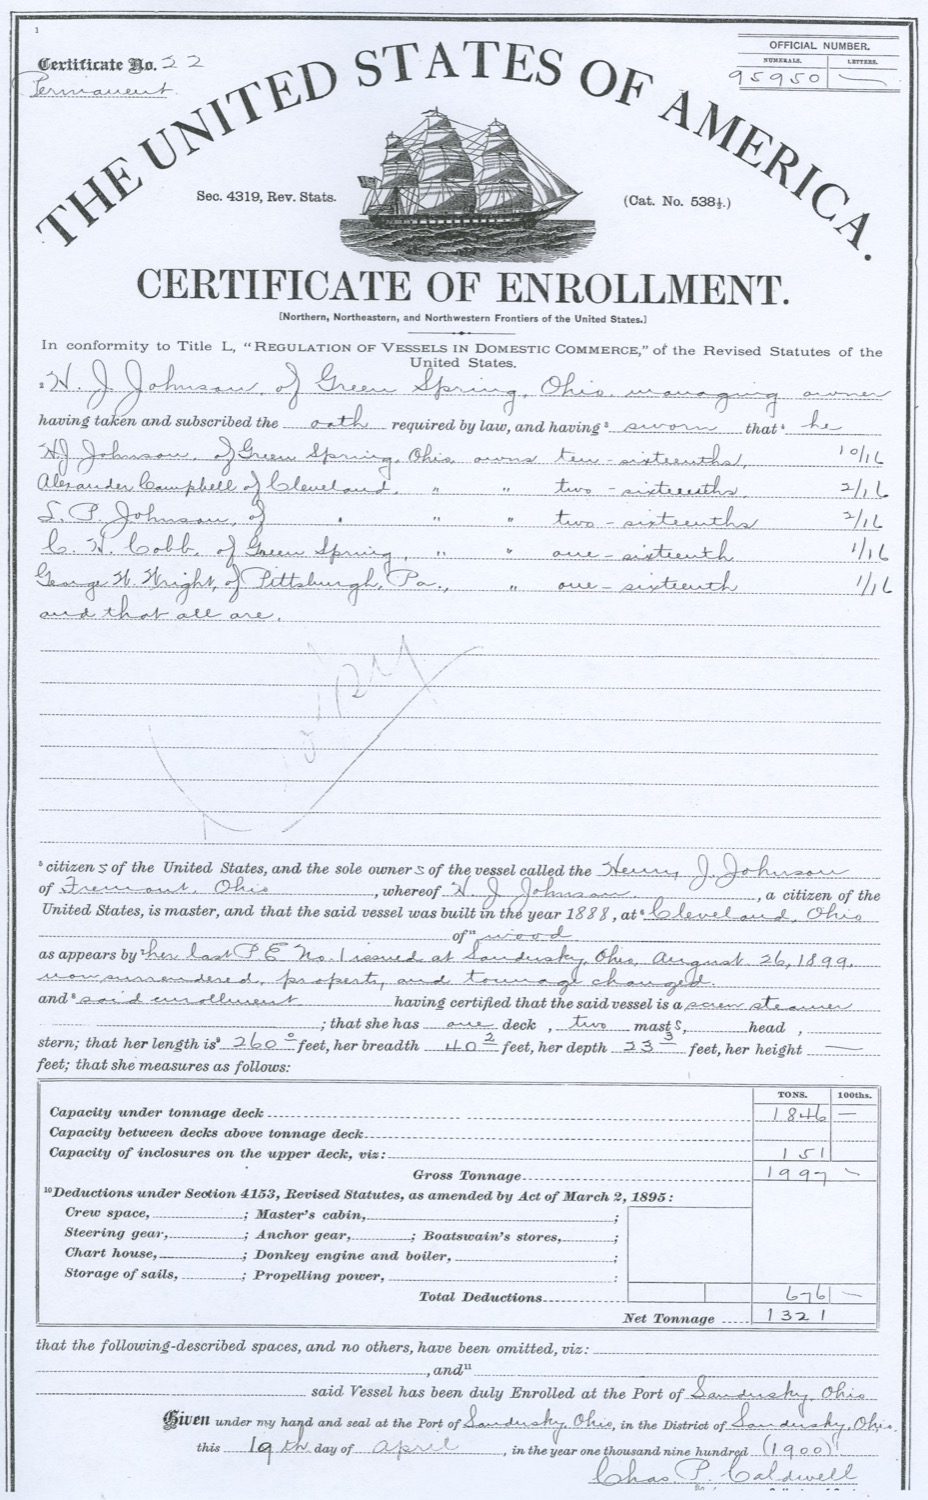 1
Certificate No. 22
Permanent
OFFICIAL NUMBER.
NUMERALS. LETTERS.
95950 —
THE UNITED STATES OF AMERICA.
Sec. 4319, Rev. Stats.
(Cat. No. 538½.)
CERTIFICATE OF ENROLLMENT.
[Northern, Northeastern, and Northwestern Frontiers of the United States.]
In conformity to Title L, "REGULATION OF VESSELS IN DOMESTIC COMMERCE," of the Revised Statutes of the
United States.
H. J. Johnson, of Green Spring, Ohio, managing owner
having taken and subscribed the oath required by law, and having sworn that he
H. J. Johnson, of Green Spring, Ohio owns ten-sixteenths, 10/16
Alexander Campbell of Cleveland, " " two-sixteenths, 2/16
L. P. Johnson, of " " " two-sixteenths 2/16
C. H. Cobb, of Green Spring, " " one-sixteenth 1/16
George W. Wright, of Pittsburgh, Pa., " one-sixteenth 1/16
and that all are.
Copy
citizens of the United States, and the sole owners of the vessel called the Henry J. Johnson
of Fremont, Ohio, whereof H. J. Johnson, a citizen of the
United States, is master, and that the said vessel was built in the year 1888, at Cleveland, Ohio
of wood
as appears by her last P E No. 1 issued at Sandusky, Ohio, August 26, 1899,
now surrendered, property and tonnage changed.
and said enrollment having certified that the said vessel is a screw steamer
; that she has one deck, two masts, head,
stern; that her length is 260 0 feet, her breadth 40 2 feet, her depth 23 3 feet, her height —
feet; that she measures as follows:
TONS. 100ths.
Capacity under tonnage deck 1846 —
Capacity between decks above tonnage deck
Capacity of inclosures on the upper deck, viz: 151
Gross Tonnage 1997 —
10 Deductions under Section 4153, Revised Statutes, as amended by Act of March 2, 1895:
Crew space, ; Master's cabin, ;
Steering gear, ; Anchor gear, ; Boatswain's stores, ;
Chart house, ; Donkey engine and boiler, ;
Storage of sails, ; Propelling power, :
Total Deductions 676 —
Net Tonnage 1321
that the following-described spaces, and no others, have been omitted, viz:
, and 11
said Vessel has been duly Enrolled at the Port of Sandusky, Ohio
Given under my hand and seal at the Port of Sandusky, Ohio, in the District of Sandusky, Ohio
this 19th day of April, in the year one thousand nine hundred (1900)
Chas. P. Caldwell